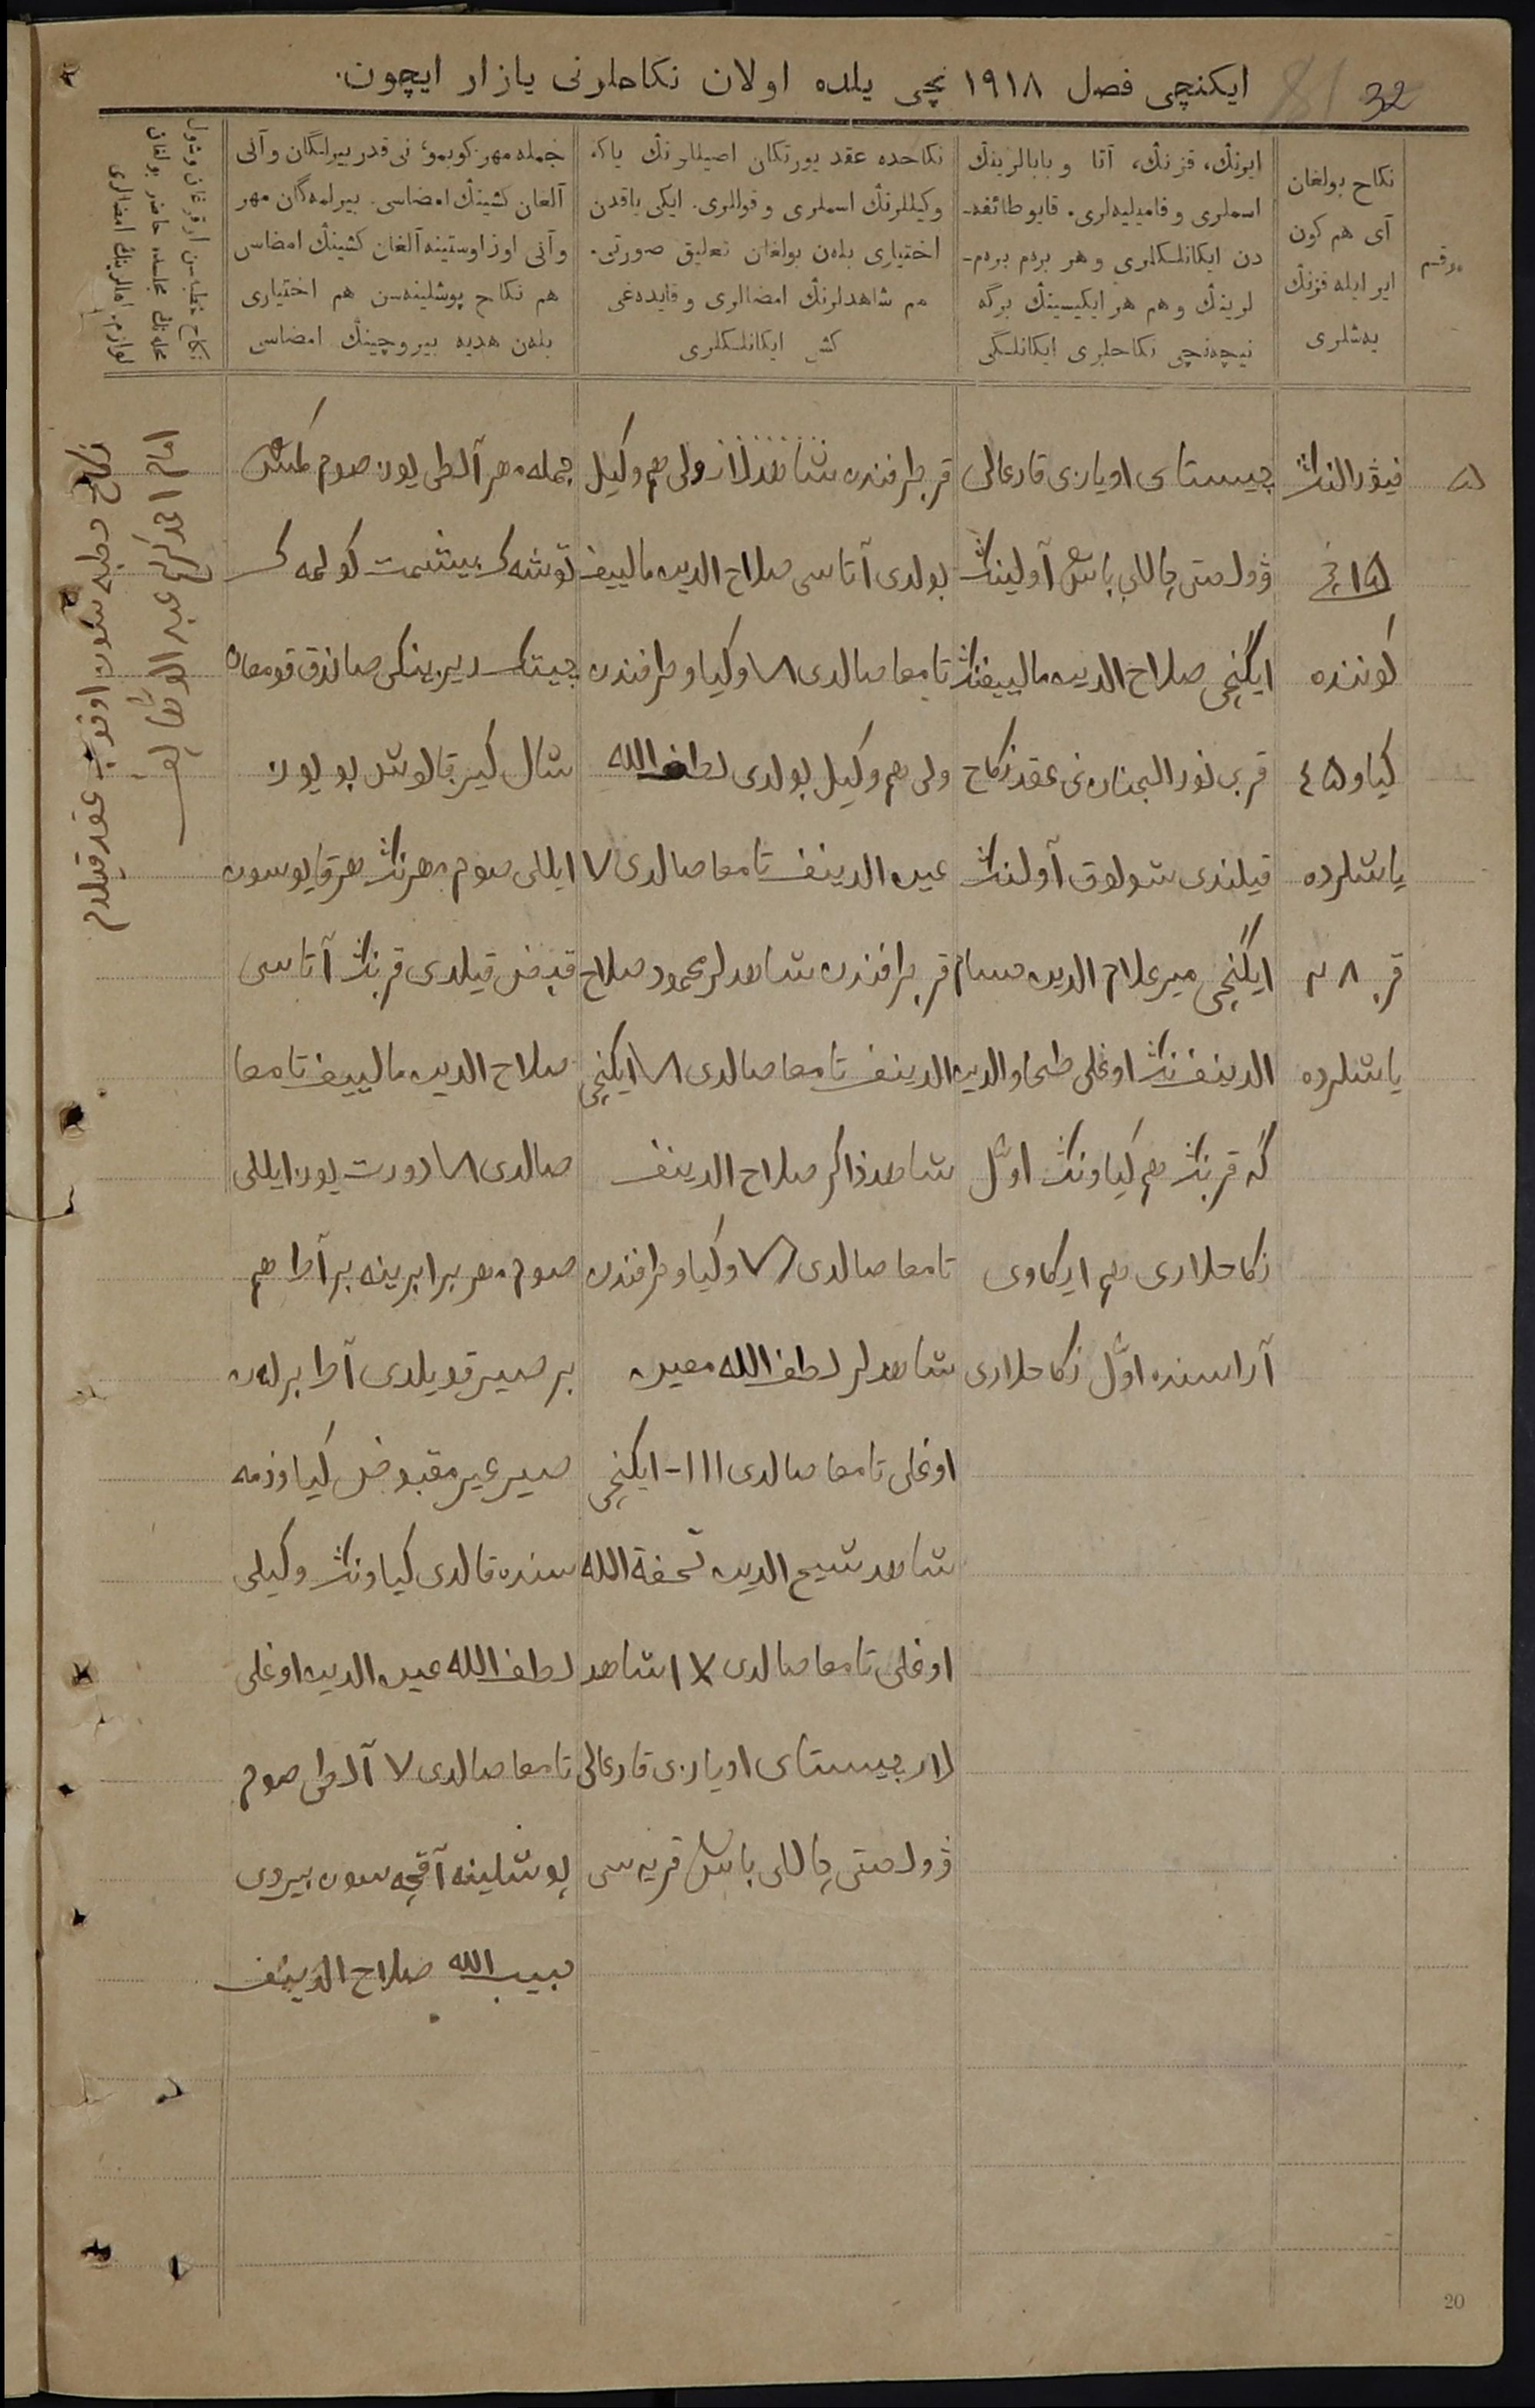 32
ایکنچی فصل ١٩١٨ نچی یلده اولان نکاحلرنی یازار ایچون.
رقم
نکاح بولغان
آی هم کون
ایر ایله قزنڭ
یەشلری
ایرنڭ، قزنڭ، آتا و بابالرینڭ
اسملری و فامیلیەلری. قایو طائفه-
دن ایکانلکلری و هر بردم بردم-
لرینڭ و هم هر ایکیسینڭ برگه
نیچەنچی نکاحلری ایکانلگی
نکاحده عقد یورتکان اصیللرنڭ یاکه
وکیللرنڭ اسملری و قوللری. ایکی یاقدن
اختیاری بلەن بولغان تعلیق صورتی.
هم شاهدلرنڭ امضالری و قایدەغی
کشی ایکانلکلری
جمله مهر کوبمو؛ نی قدر بیرلگان و آنی
آلغان کشینڭ امضاسی. بیرلمەگان مهر
و آنی اوز اوستینه آلغان کشینڭ امضاسی
هم نکاح پوشلینەسن هم اختیاری
بلەن هدیه بیروچینڭ امضاسی
نکاح خطبەسن اوقوغان و شول
مجلسده حاضر بولغان
لوازم امضالری
٥
فیۋرالنڭ
١٥ نچی
کوننده
کیاو ٤٥
یاشلرده
قز ٢٨
یاشلرده
چیستای اویازی قارغالی
ۋولصتی چاللی باش آولینڭ
ایکنچی صلاح الدین مالییفنڭ
قزی نورالجنان نی عقد نکاح
قیلندی شولوق آولنڭ
ایکنچی میرعلام الدین حسام
الدینف نڭ اوغلی
گه قزنڭ هم کیاونڭ اوّل
نکاحلاری هم ایکاوی
آراسنده اوّل نکاحلاری
قز طرفندن شاهدلار ولی هم وکیل
بولدی آتاسی صلاح الدین مالییف
تامغا صالدی ٨ وکیاو طرفندن
ولی هم وکیل بولدی لطف الله
عین الدینف تامغا صالدی ٧
قز طرفندن شاهدلر محمود صلاح
الدینف تامغا صالدی ٨ ایکنچی
شاهد ذاکر صلاح الدینف
تامغا صالدی ٧ وکیاو طرفندن
شاهدلر لطف الله معین
اوغلی تامغا صالدی ١١١- ایکنچی
شاهد شیخ الدین تحفة الله
اوغلی تامغا صالدی X١ شاهد
لار چیستای اویازی قارغالی
ۋولصتی چاللی باش قریەسی
جمله مهر آلطی یوز صوم
توشەک بیشمت کولمەک
چیتک دیربنکی صاندق قومغان
شال کیز قالوش بو یوز
ایللی صوم مهرنڭ هر قایوسون
قبض قیلدی قزنڭ آتاسی
صلاح الدین مالییف تامغا
صالدی ٨ دورت یوز ایللی
صوم مهر برابرینه بر آط هم
بر صیر قویلدی آط برلەن
صیر غیر مقبوض کیاو ذمه
سنده قالدی کیاونڭ وکیلی
لطف الله عین الدین اوغلی
تامغا صالدی ٧ آلطی صوم
پوشلینه آقچەسون بیردی
حبیب الله صلاح الدینف
نکاح خطبەسون اوقوب عقد قیلدم
امام
20